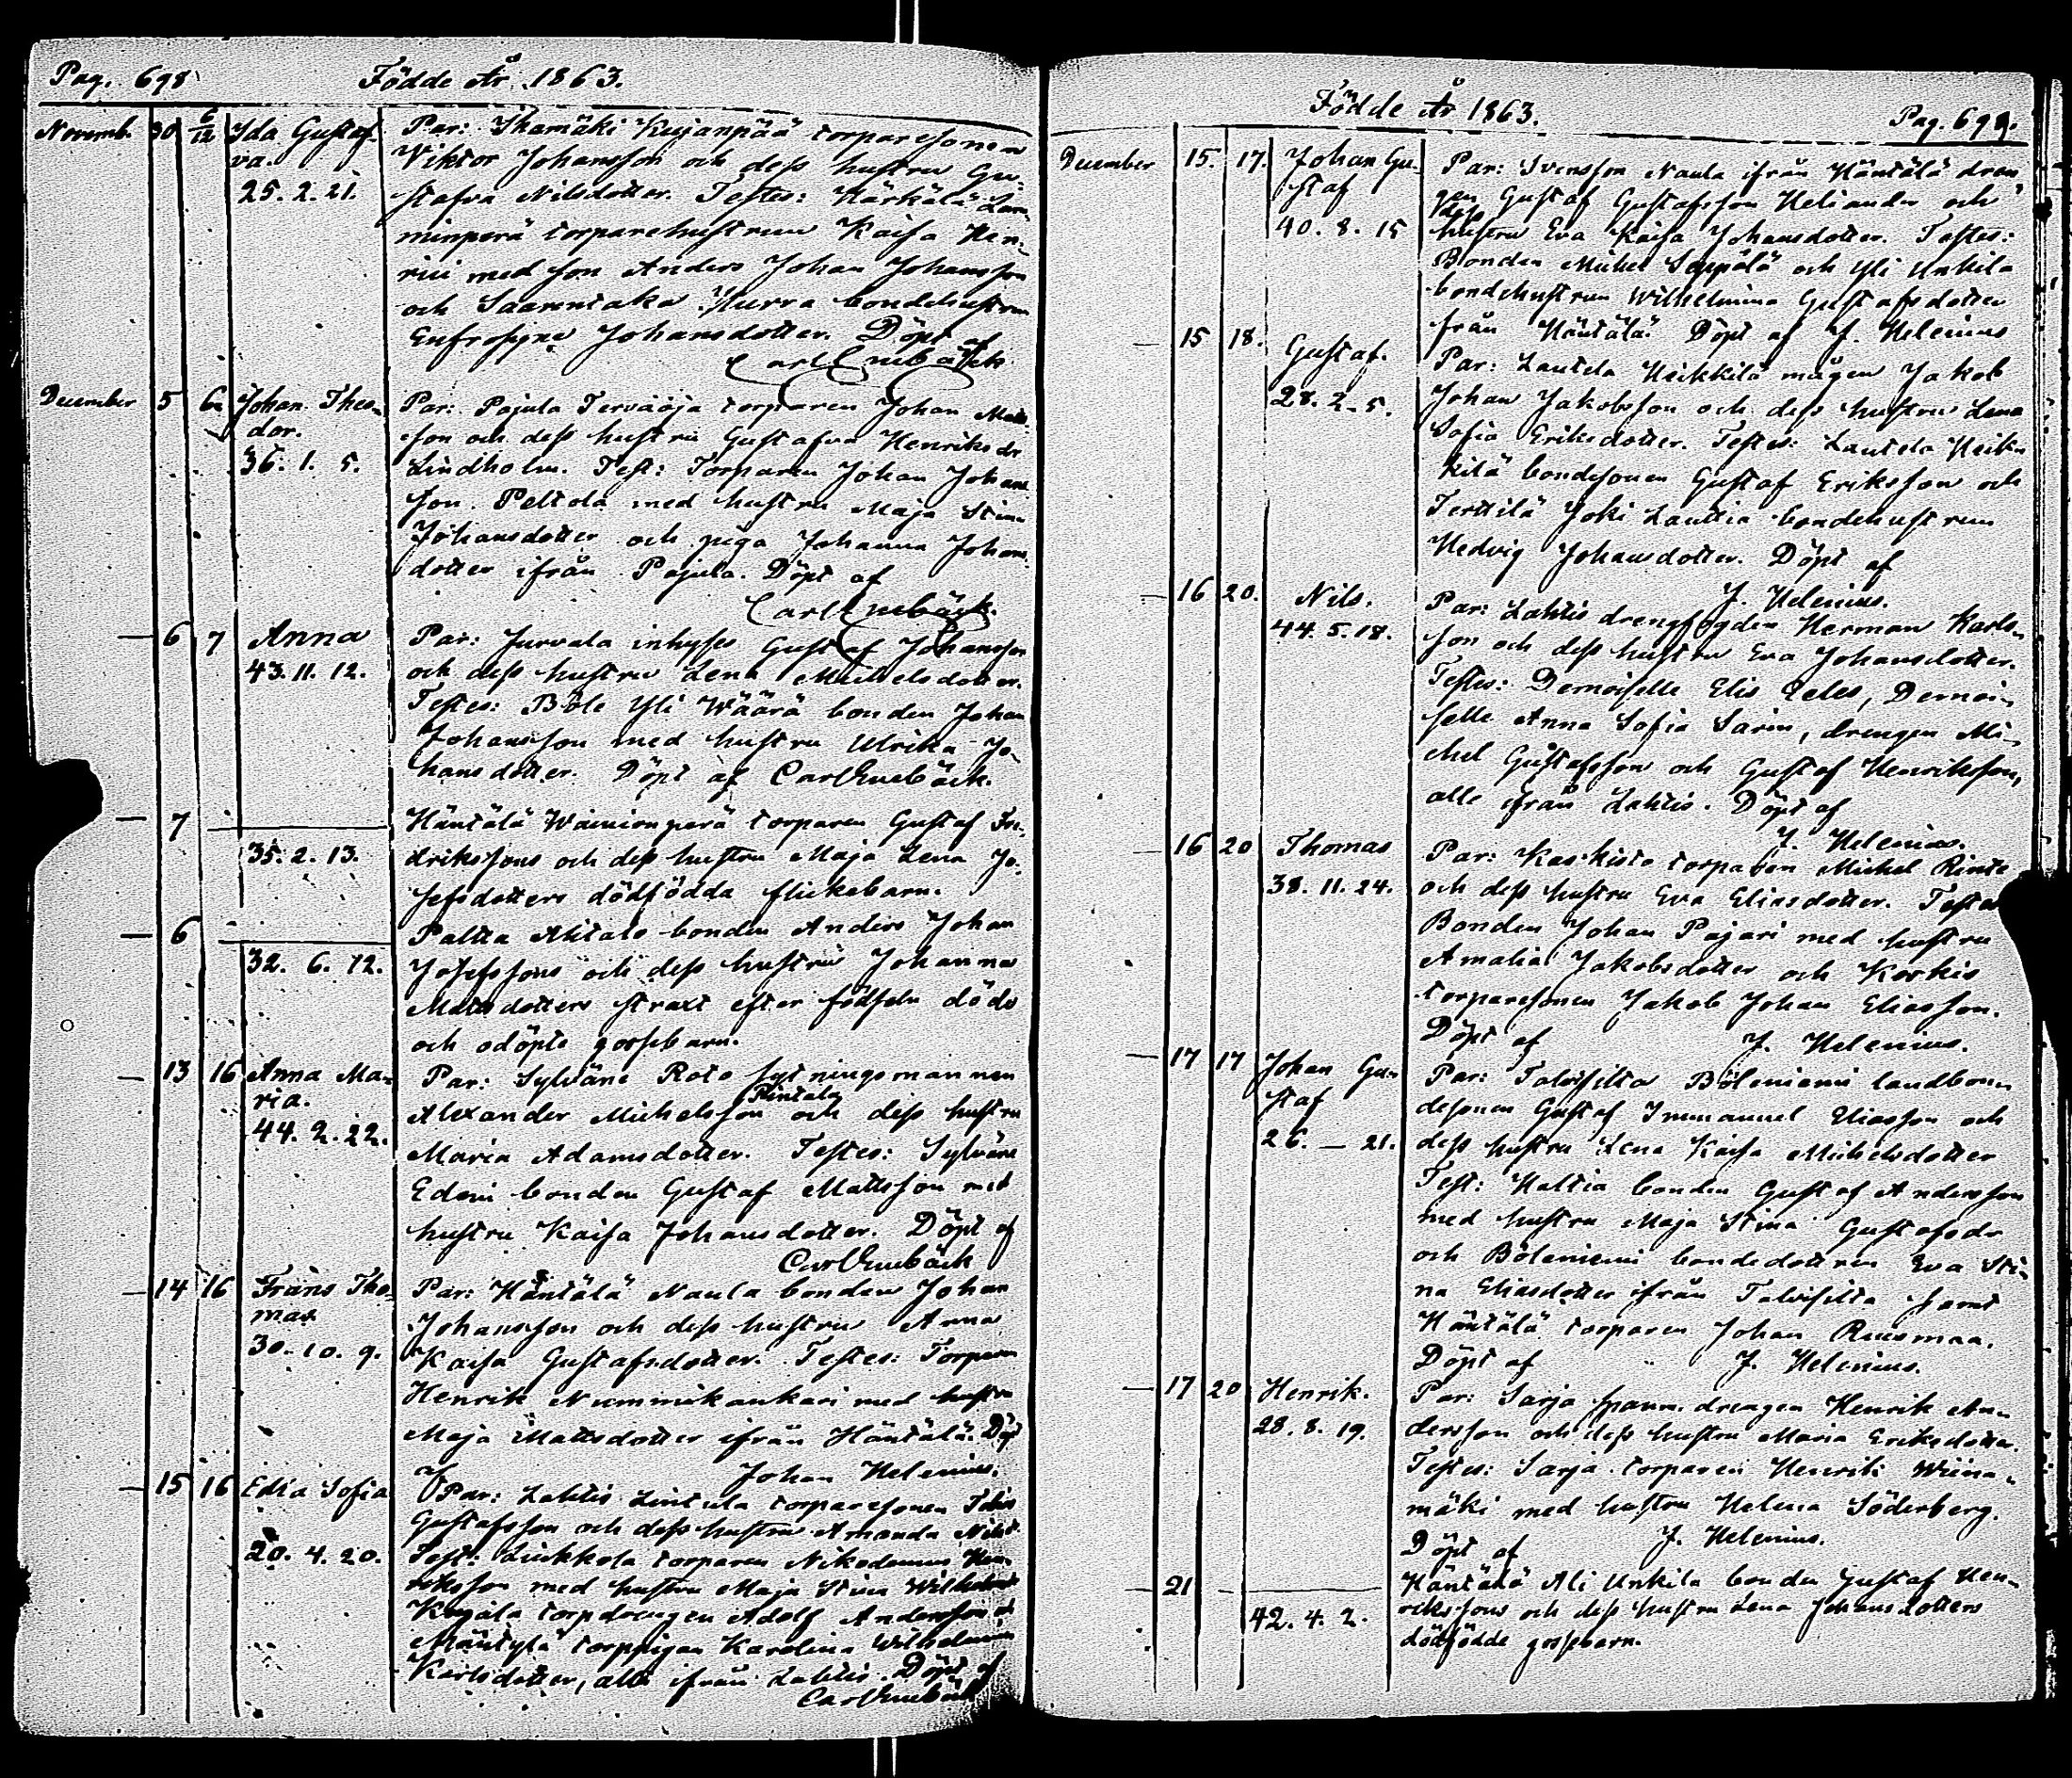 Pag. 698 Födde År 1863.
Novemb. 30 6/12 Ida Gustaf- Par: Ihamäki Kujanpää torparesonen
va. Wiktor Johansson och dess hustru Gu-
25. 2. 21. stafva Nilsdotter. Testes: Härkälä Lam-
minperä torparehustrun Kaisa Hen-
rici med son Anders Johan Johansson
och Saarentaka Hurra bondehustrun
Eufrosyne Johansdotter. Döpt af
Carl Enebäck
December 5 6 Johan Theo- Par: Pajula Tervaoja torparen Johan Matts-
dor. son och dess hustru Gustafva Henriksdr
36. 1. 5. Lindholm. Test: Torparen Johan Johans-
son Peltola med hustru Maja Stina
Johansdotter och piga Johanna Johans-
dotter ifrån Pajula. Döpt af
Carl Enebäck.
— 6 7 Anna Par: Jurvala inhyses Gustaf Johansson
43. 11. 12. och dess hustru Lena Michelsdotter.
Testes: Böle Yli Wäärä bonden Johan
Johansson med hustru Ulrika Jo-
hansdotter. Döpt af Carl Enebäck.
— 7 — Häntälä Wainionperä torparen Gustaf Fre-
35. 2. 13. drikssons och dess hustru Maja Lena Jo-
sefsdotters dödfödda flickebarn.
— 6 — Paltta Ahtalo bonden Anders Johan
32. 6. 12. Josefssons och dess hustru Johanna
Mattsdotters straxt efter födseln döde
och odöpte gossebarn.
— 13 16 Anna Ma- Par: Sylväne Roto sytningsmannen
ria. Alexander Michelsson Rintala och dess hustru
44. 2. 22. Maria Adamsdotter. Testes: Sylväne
Edoni bonden Gustaf Mattsson med
hustru Kaisa Johansdotter. Döpt af
Carl Enebäck
— 14 16 Frans Tho- Par: Häntälä Naula bonden Johan
mas Johansson och dess hustru Anna
30. 10. 9. Kaisa Gustafsdotter. Testes: Torparen
Henrik Nummikankari med hustru
Maja Mattsdotter ifrån Häntälä. Döpt
af Johan Helenius.
— 15 16 Edla Sofia Par: Lahtis Lintula torparesonen
Gustafsson och dess hustru Amanda Nilsd.
20. 4. 20. Test: Liukkola torparen Nikodemus Hen-
riksson med hustru Maja Stina Wilhelmsd
Kujala torpdrengen Adolf Andersson o
Mäntylä torppigan Karolina Wilhelmina
Karlsdotter, alla ifrån Lahtis. Döpt af
Carl Enebäck
Födde År 1863. Pag. 699.
December 15. 17. Johan Gu- Par: Svensson Naula ifrån Häntälä dren-
staf gen Gustaf Gustafsson Heliander och
40. 8. 15 dess hustru Eva Kaisa Johansdotter. Testes:
Bonden Michel Seppälä och Yli Unkila
bondehustrun Wilhelmina Gustafsdotter
från Häntälä. Döpt af J. Helenius
— 15 18. Gustaf. Par: Lautela Heikkilä mågen Jakob
28. 2. 5. Johan Jakobsson och dess hustru Lena
Sofia Eriksdotter. Testes: Lautela Heik-
kilä bondesonen Gustaf Eriksson och
Terttilä Joki Lauttia bondehustrun
Hedvig Johansdotter. Döpt af
J. Helenius.
— 16 20. Nils. Par: Lahtis drengfogden Herman Karls-
44. 5. 18. son och dess hustru Eva Johansdotter.
Testes: Demoiselle Elis Eeles, Demoi-
selle Anna Sofia Sarin, drengen Mi-
chel Gustafsson och Gustaf Henriksson,
alle ifrån Lahtis. Döpt af
J. Helenius.
— 16 20 Thomas Par: Kaskisto torparen Michel Rinte
38. 11. 24. och dess hustru Eva Eliasdotter. Testes
Bonden Johan Pajari med hustru
Amalia Jakobsdotter och Korkis
torparesonen Jakob Johan Eliasson.
Döpt af J. Helenius.
— 17 17 Johan Gu- Par: Talvisilta Böleniemi landbon-
staf desonen Gustaf Immanuel Eliasson och
26. — 21. dess hustru Lena Kaisa Michelsdotter
Test: Haltia bonden Gustaf Andersson
med hustru Maja Stina Gustafsdr
och Böleniemi bondedottren Eva Sti-
na Eliasdotter ifrån Talvisilta samt
Häntälä torparen Johan Ruusmaa.
Döpt af J. Helenius.
— 17 20 Henrik. Par: Sarja spanm. drengen Henrik An-
28. 8. 19. dersson och dess hustru Maria Eriksdotter.
Testes: Sarja torparen Henrik Wiina-
mäki med hustru Helena Söderberg.
Döpt af J. Helenius.
— 21 — Häntälä Ali Unkila bonden Gustaf Hen-
42. 4. 2. rikssons och dess hustru Lena Johansdotters
dödfödde gossebarn.